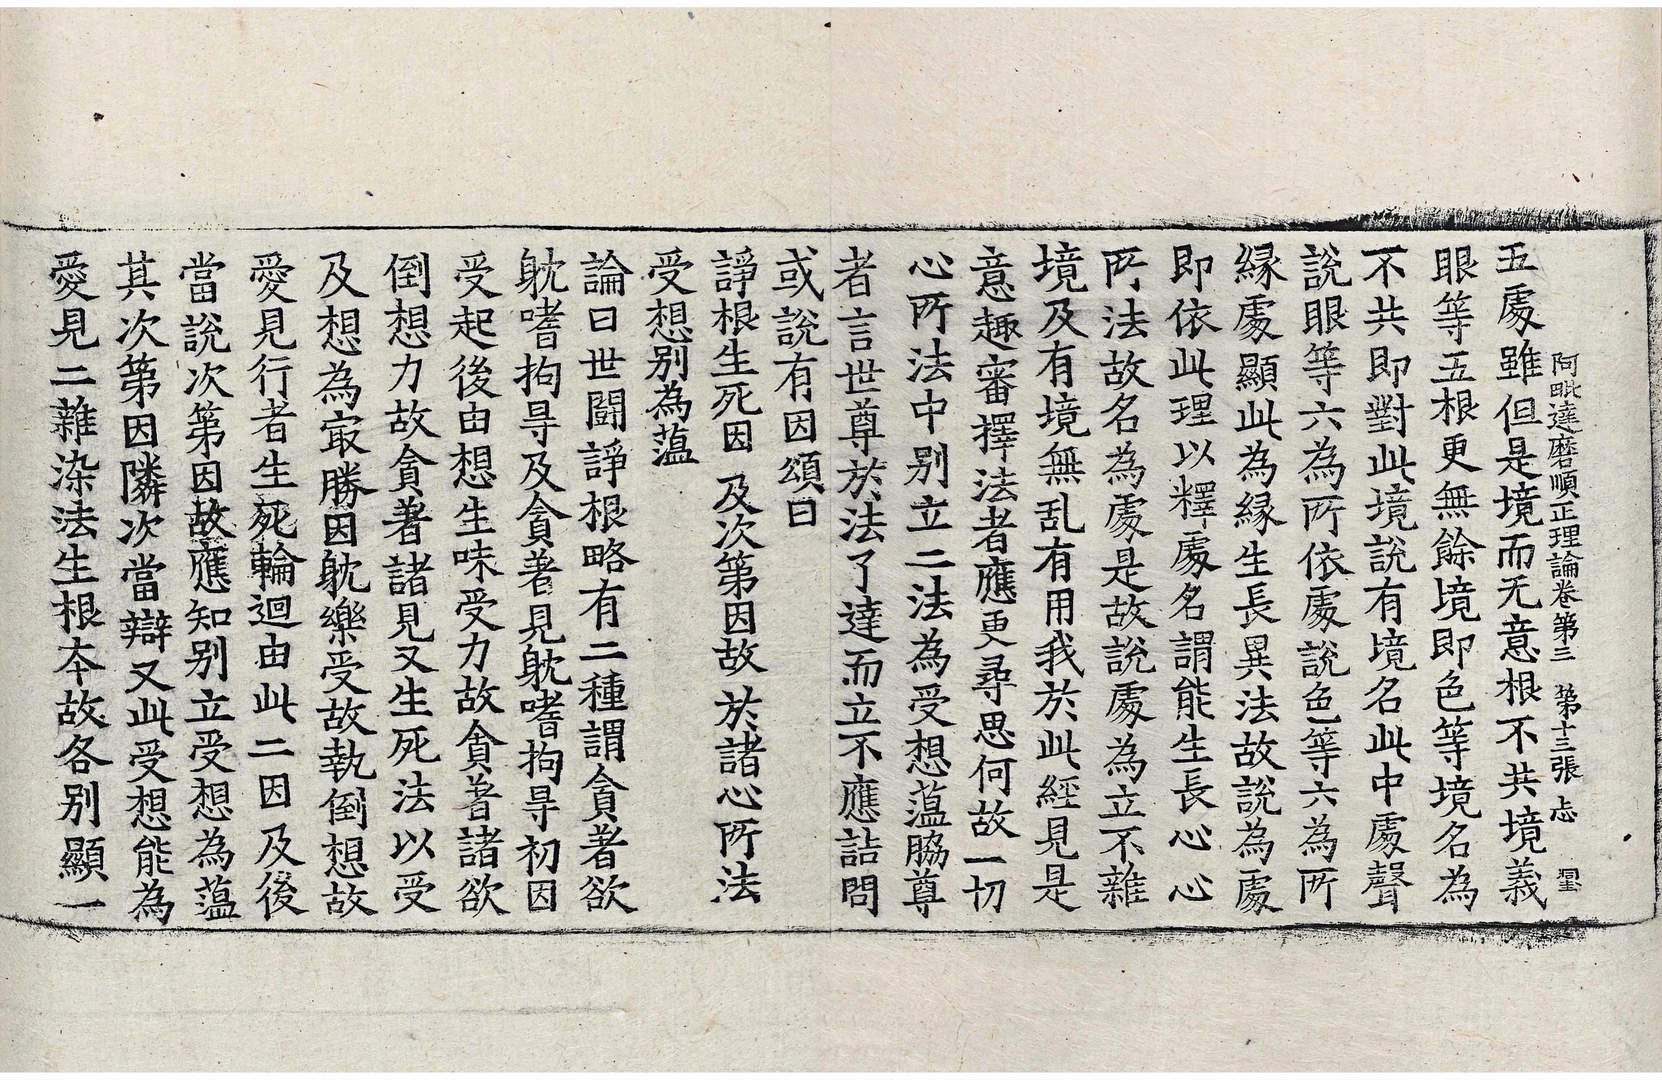 阿毗達磨順正理論卷第三　第十三張　忐
五處雖但是境而无意根不共境義
眼等五根更無餘境即色等境名為
不共即對此境說有境名此中處聲
說眼等六為所依處說色等六為所
緣處顯此為緣生長異法故說為處
即依此理以釋處名謂能生長心心
所法故名為處是故說處為立不雜
境及有境無乱有用我於此經見是
意趣審擇法者應更尋思何故一切
心所法中別立二法為受想薀脇尊
者言世尊於法了達而立不應詰問
或說有因頌曰
諍根生死因　及次第因故　於諸心所法
受想別為薀
論曰世鬪諍根略有二種謂貪著欲
躭嗜拘㝵及貪著見躭嗜拘㝵初因
受起後由想生味受力故貪著諸欲
倒想力故貪著諸見又生死法以受
及想為㝡勝因躭樂受故執倒想故
愛見行者生死輪迴由此二因及後
當說次第因故應知別立受想為薀
其次第因隣次當辯又此受想能為
愛見二雜染法生根本故各別顯一